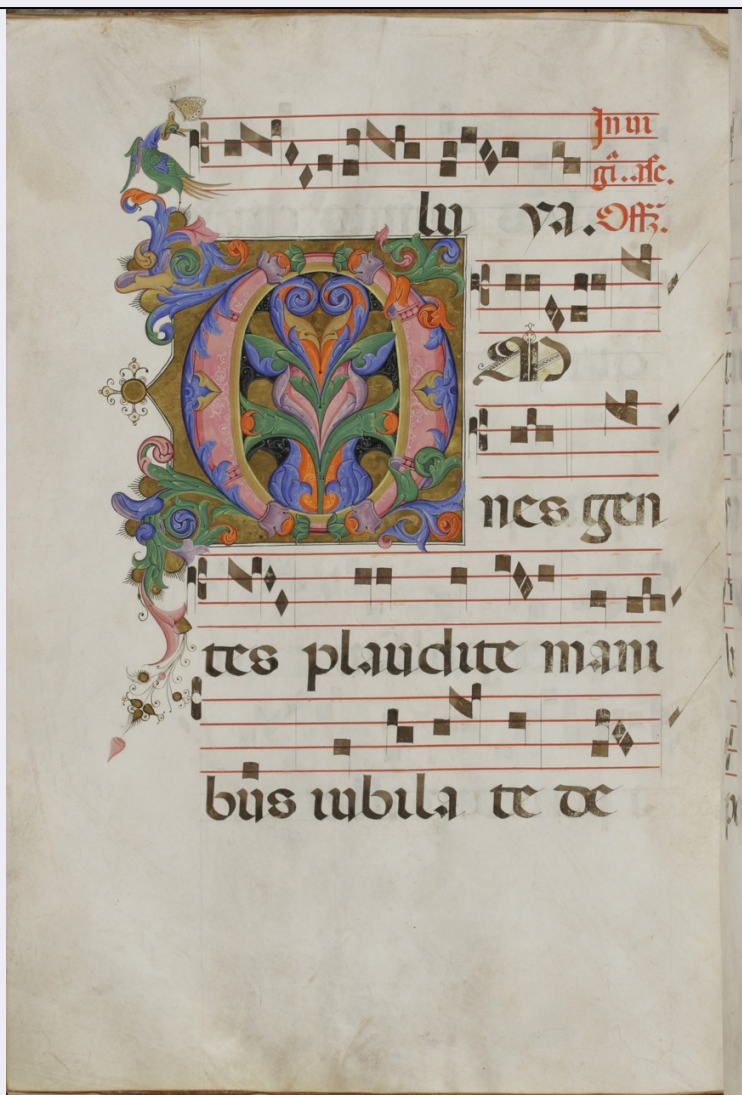 In ui
gi..asc.
lu ya. Off.
OM
nes gen
tes plaudite mani
bus iubila te de